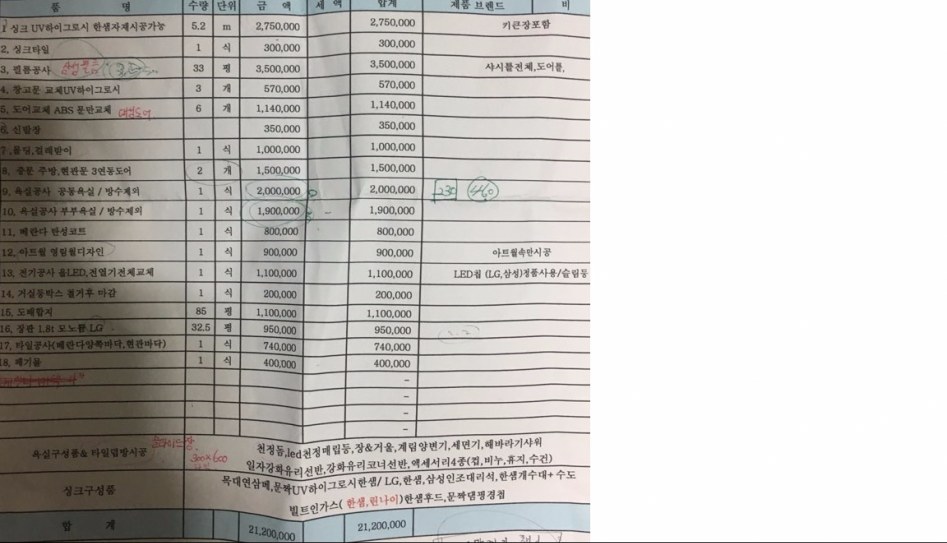 품 명 수량 단위 금 액 세 액 합계 제품 브랜드 비
1 싱크 UV하이그로시 한샘자재시공가능 5.2 m 2,750,000 2,750,000 키큰장포함
2, 싱크타일 1 식 300,000 300,000
3, 필름공사 33 평 3,500,000 3,500,000 샤시틀전체,도어틀,
4, 창고문 교체UV하이그로시 3 개 570,000 570,000
5, 도어교체 ABS 문만교체 6 개 1,140,000 1,140,000
6, 신발장 350,000 350,000
7, 몰딩,걸레받이 1 식 1,000,000 1,000,000
8, 중문 주방,현관문 3연동도어 2 개 1,500,000 1,500,000
9, 욕실공사 공동욕실 / 방수제외 1 식 2,000,000 2,000,000 230 460
10, 욕실공사 부부욕실 / 방수제의 1 식 1,900,000 - 1,900,000
11, 베란다 탄성코트 1 식 800,000 800,000
12, 아트월 영림월디자인 1 식 900,000 900,000 아트월속만시공
13, 전기공사 올LED,전열기전체교체 1 식 1,100,000 1,100,000 LED칩 (LG,삼성)정품사용/슬림등
14, 거실등박스 철거후 마감 1 식 200,000 200,000
15, 도배합지 85 평 1,100,000 1,100,000
16, 장판 1.8t 모노륨 LG 32.5 평 950,000 950,000
17, 타일공사(베란다양쪽바닥,현관바닥) 1 식 740,000 740,000
18, 폐기물 1 식 400,000 400,000
-
-
-
-
욕실구성품& 타일덥방시공 300×600 천정돔,led천정매립등,장&거울,계림양변기,세면기,해바라기샤워
일자강화유리선반,강화유리코너선반,액세서리4종(컵,비누,휴지,수건)
싱크구성품 목대연삼베,문짝UV하이그로시한샘/ LG,한샘,삼성인조대리석,한샘개수대+ 수도
빌트인가스( 한샘,린나이)한샘후드,문짝댐핑경첩
합 계 21,200,000 21,200,000